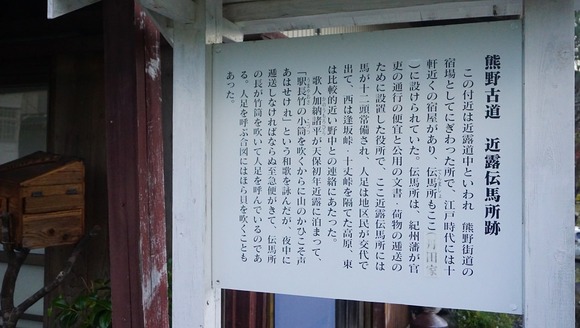 熊野古道　近露伝馬所跡
この付近は近露道中といわれ　熊野街道の
宿場としてにぎわった所で、江戸時代には十
軒近くの宿屋があり、伝馬所もここ
)に設けられていた。伝馬所は、紀州藩が官
吏の通行の便宜と公用の文書・荷物の逓送の
ために設置した役所で、ここ近露伝馬所には
馬が十二頭常備され、人足は地区民が交代で
出て、西は逢坂峠、十丈峠を隔てた高原、東
は比較的近い野中との連絡にあたった。
歌人加納諸平が天保初年近露に泊まって、
「駅長竹の小筒を吹くからに山のかひこそ声
あはせけれ」という和歌を詠んだが、夜中に
逓送しなければならぬ至急便がきて、伝馬所
の長が竹筒を吹いて人足を呼んでいるのであ
る。人足を呼ぶ合図にはほら貝を吹くことも
あった。